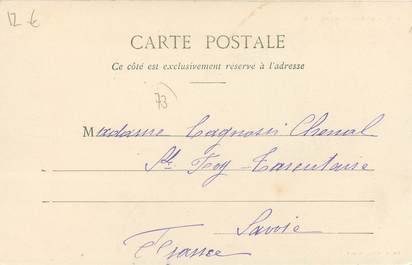 12 €
CARTE POSTALE
Ce côté est exclusivement réservé à l'adresse
73
Madame Cagnossi Chenal
Ste Foy Tarentaise
Savoie
France